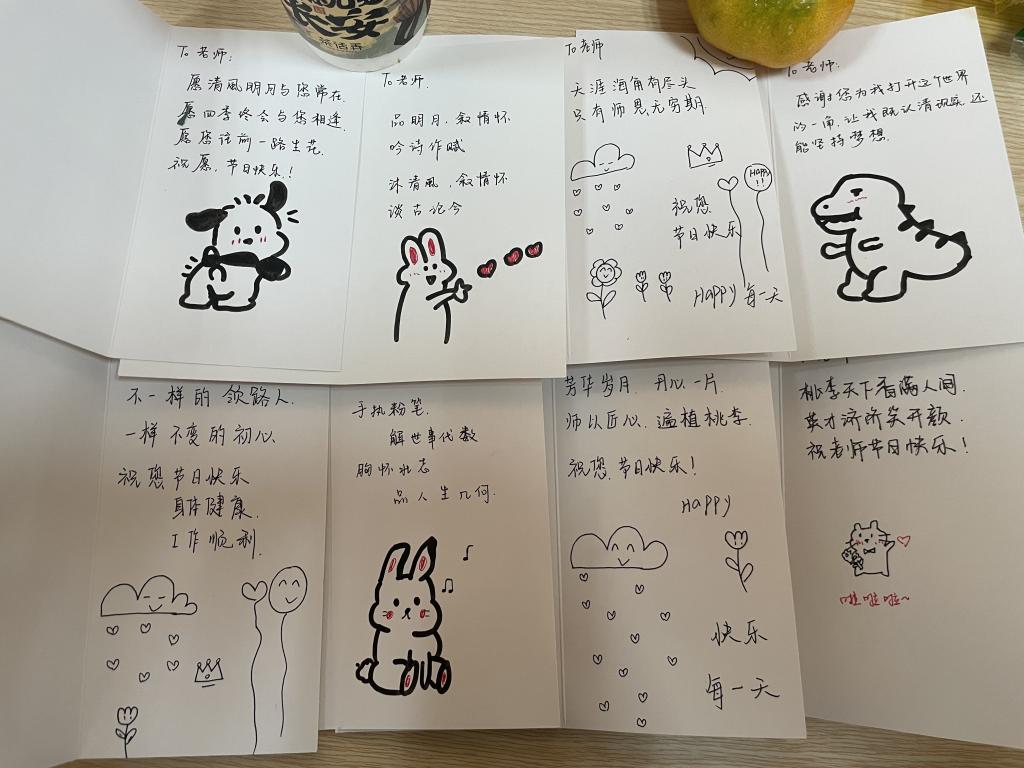 长安
茶话弄
To 老师:
愿清風明月与您常在.
愿四季终会与您相逢.
愿您往前一路生花.
祝愿,节日快乐.!
To 老师.
品明月,叙情怀
吟诗作赋
沐清風,叙情怀
谈古论今
To 老师
天涯海角有尽头
只有师恩无穷期.
HAPPY
!!
祝您
节日快乐
Happy 每一天
To 老师.
感谢您为我打开这个世界
的一角,让我既认清现实还
能坚持梦想.
不一样的领路人.
一样不变的初心.
祝您节日快乐
身体健康.
工作顺利.
手执粉笔.
解世事代数
胸怀壮志
品人生几何.
芳华岁月 丹心一片.
师以匠心,遍植桃李.
祝您,节日快乐!
Happy
快乐
每一天
桃李天下香满人间.
英才济济笑开颜.
祝老师节日快乐!
啦啦啦~